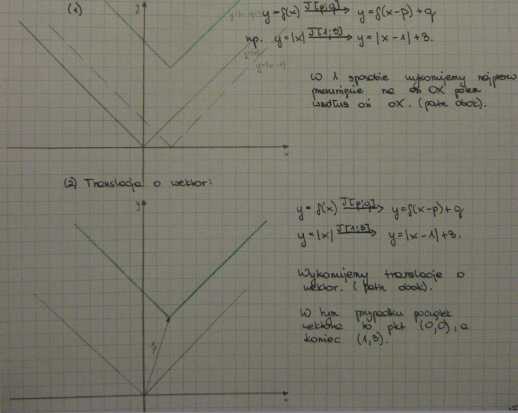 (1)
y
y=f(x) J[p;q] y=f(x-p)+q
np. y=|x| J[1;3] y=|x-1|+3.
y=|x-1|
W I sposobie wykonujemy najpierw
przesunięcie na oś OX potem
wzdłuż osi OX. (patrz obok).
x
(2) Translacja o wektor:
y
y=f(x) J[p;q] y=f(x-p)+q
y=|x| J[1;3] y=|x-1|+3.
Wykonujemy translację o
wektor. (patrz obok).
W tym przypadku początek
wektora to pkt (0,0), a
koniec (1,3).
x